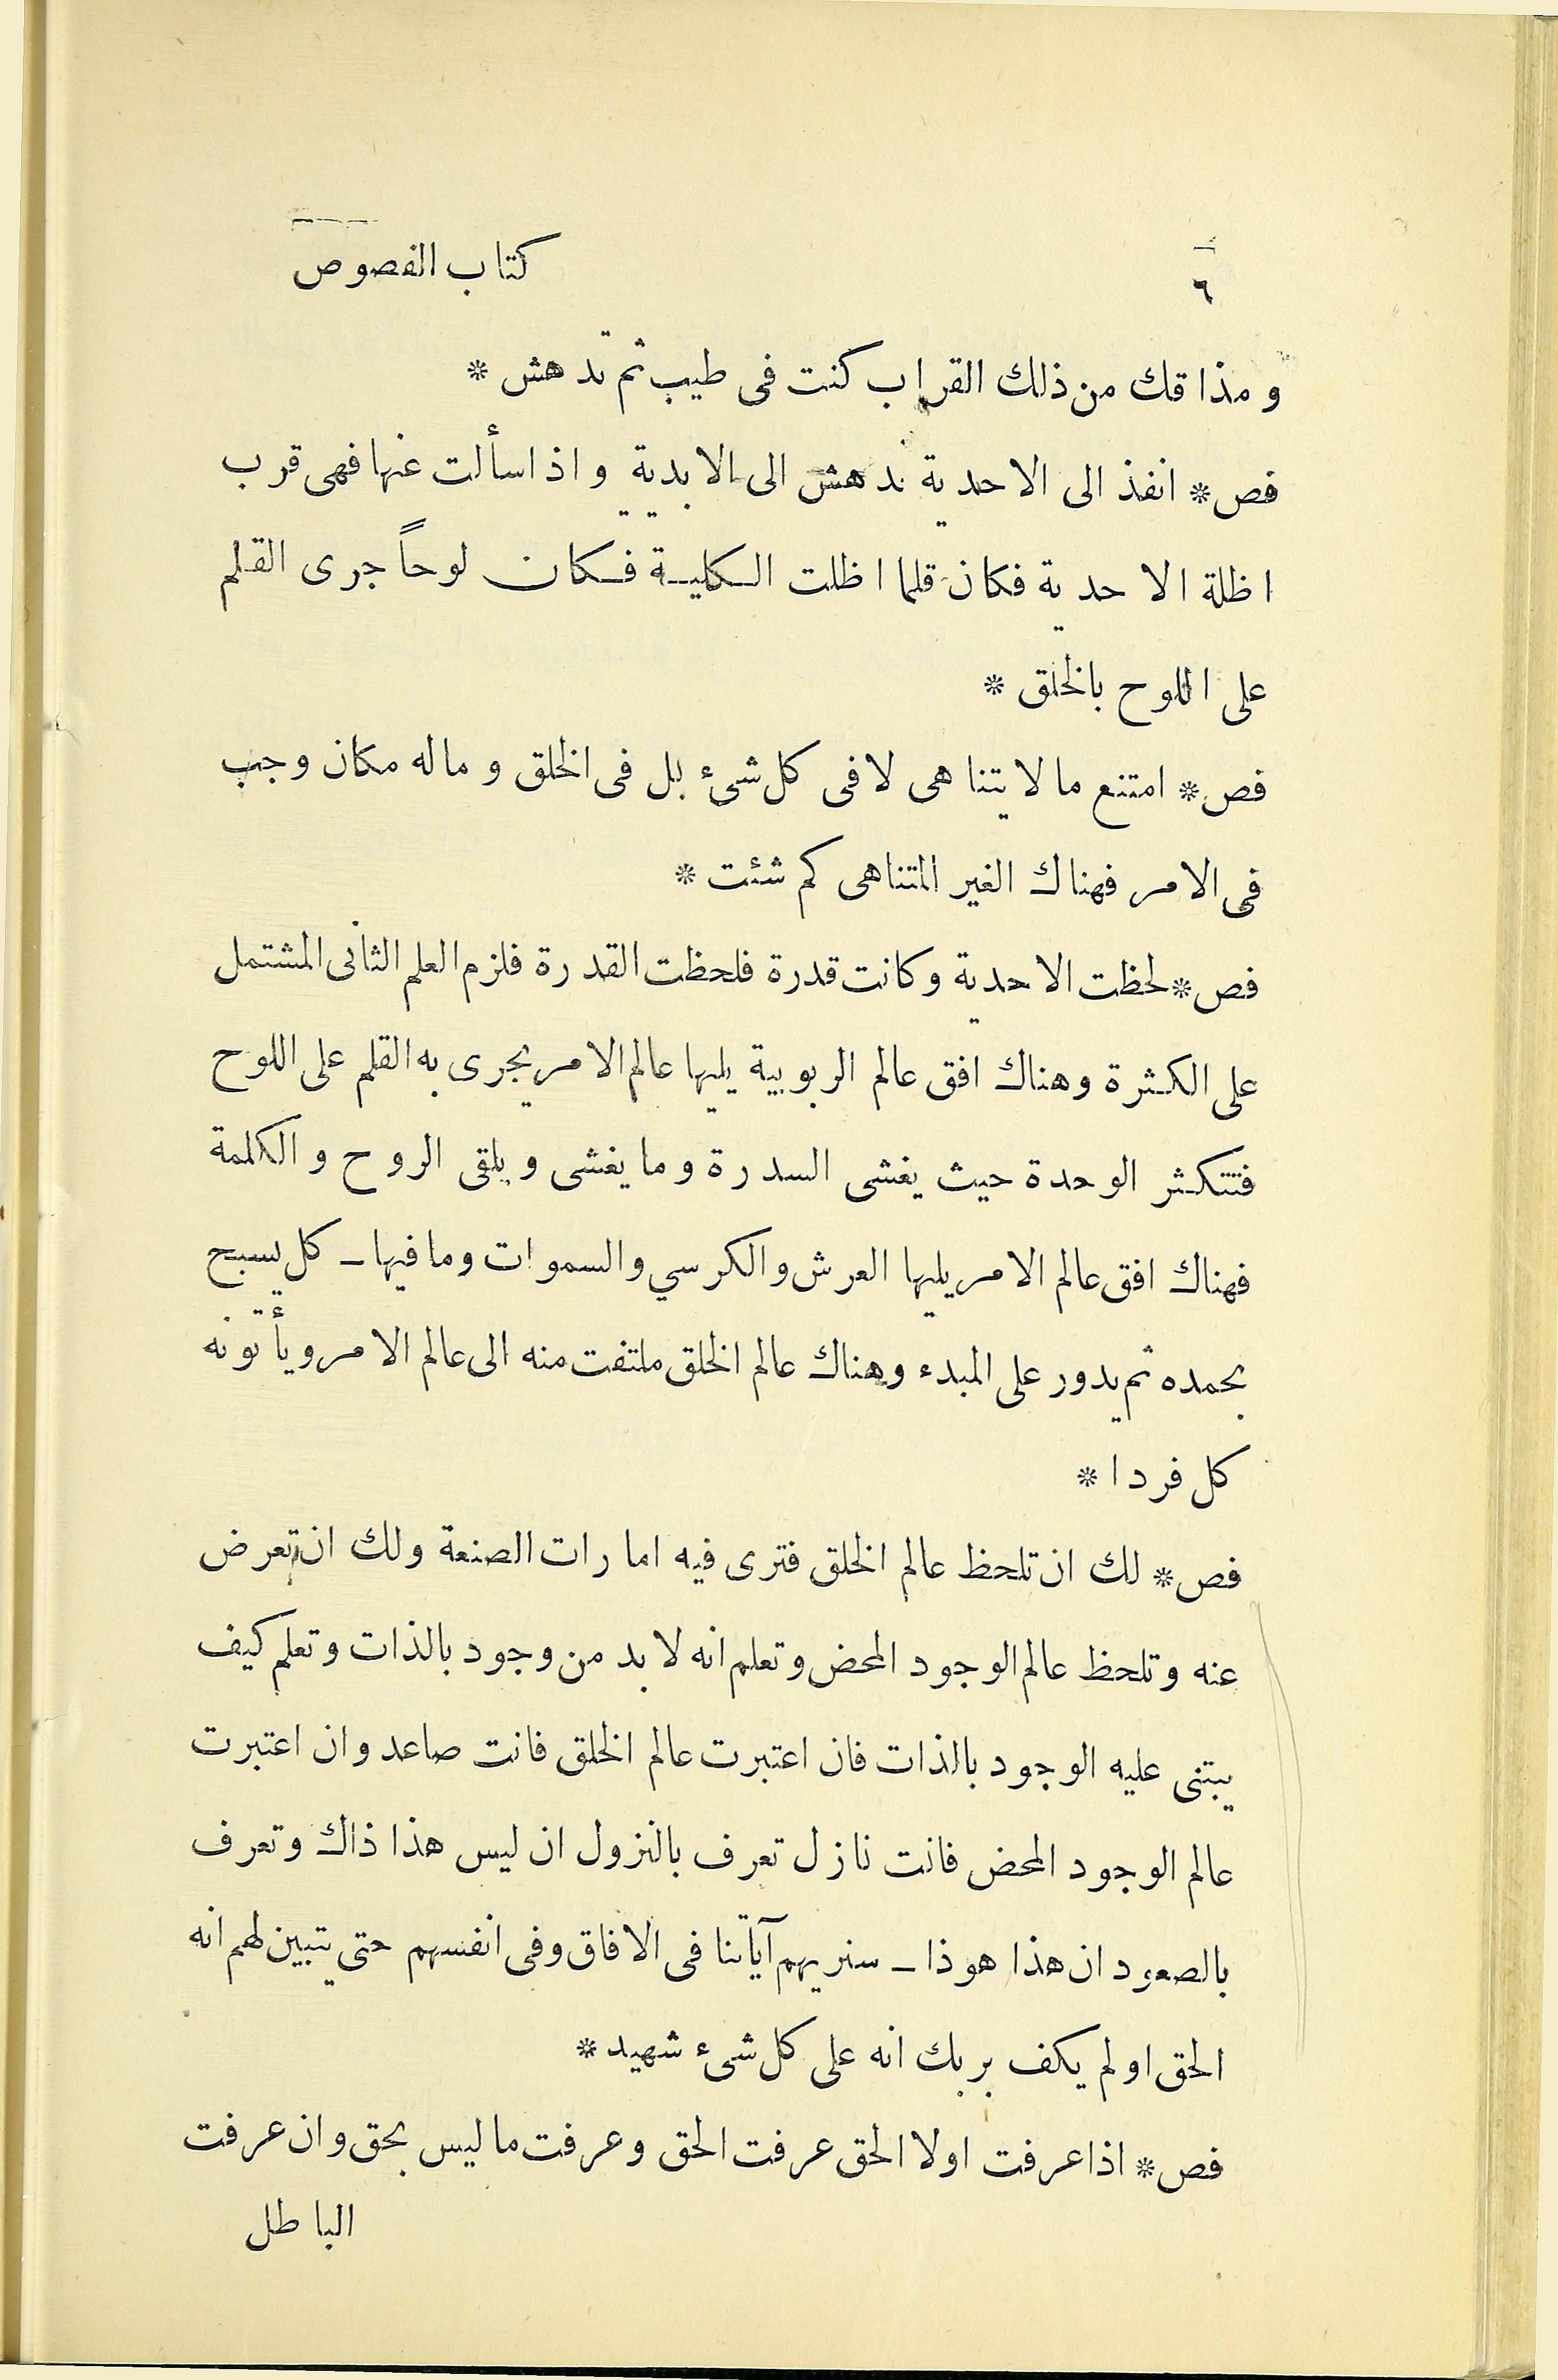 ٦
كتاب الفصوص
ومذاقك من ذلك القراب كنت فى طيب ثم تدهش *
فص * انفذ الى الاحدية تدهش الى الابدية واذا سألت عنها فهى قرب
اظلة الاحدية فكان قلما اظلت الكلية فكان لوحاً جرى القلم
على اللوح بالخلق *
فص * امتنع ما لا يتناهى لا فى كل شىء بل فى الخلق وماله مكان وجب
فى الامر فهناك الغير المتناهى كم شئت *
فص * لحظت الاحدية وكانت قدرة فلحظت القدرة فلزم العلم الثانى المشتمل
على الكثرة وهناك افق عالم الربوبية يليها عالم الامر يجرى به القلم على اللوح
فتتكثر الوحدة حيث يغشى السدرة وما يغشى ويلقى الروح والكلمة
فهناك افق عالم الامر يليها العرش والكرسي والسموات وما فيها ـ كل يسبح
بحمده ثم يدور على المبدء وهناك عالم الخلق ملتفت منه الى عالم الامر ويأتونه
كل فردا *
فص * لك ان تلحظ عالم الخلق فترى فيه امارات الصنعة ولك ان تعرض
عنه وتلحظ عالم الوجود المحض وتعلم انه لا بد من وجود بالذات وتعلم كيف
يبتنى عليه الوجود بالذات فان اعتبرت عالم الخلق فانت صاعد وان اعتبرت
عالم الوجود المحض فانت نازل تعرف بالنزول ان ليس هذا ذاك وتعرف
بالصعود ان هذا هوذا ـ سنريهم آياتنا فى الافاق وفى انفسهم حتى يتبين لهم انه
الحق اولم يكف بربك انه على كل شىء شهيد *
فص * اذا عرفت اولا الحق عرفت الحق وعرفت ما ليس بحق وان عرفت
الباطل